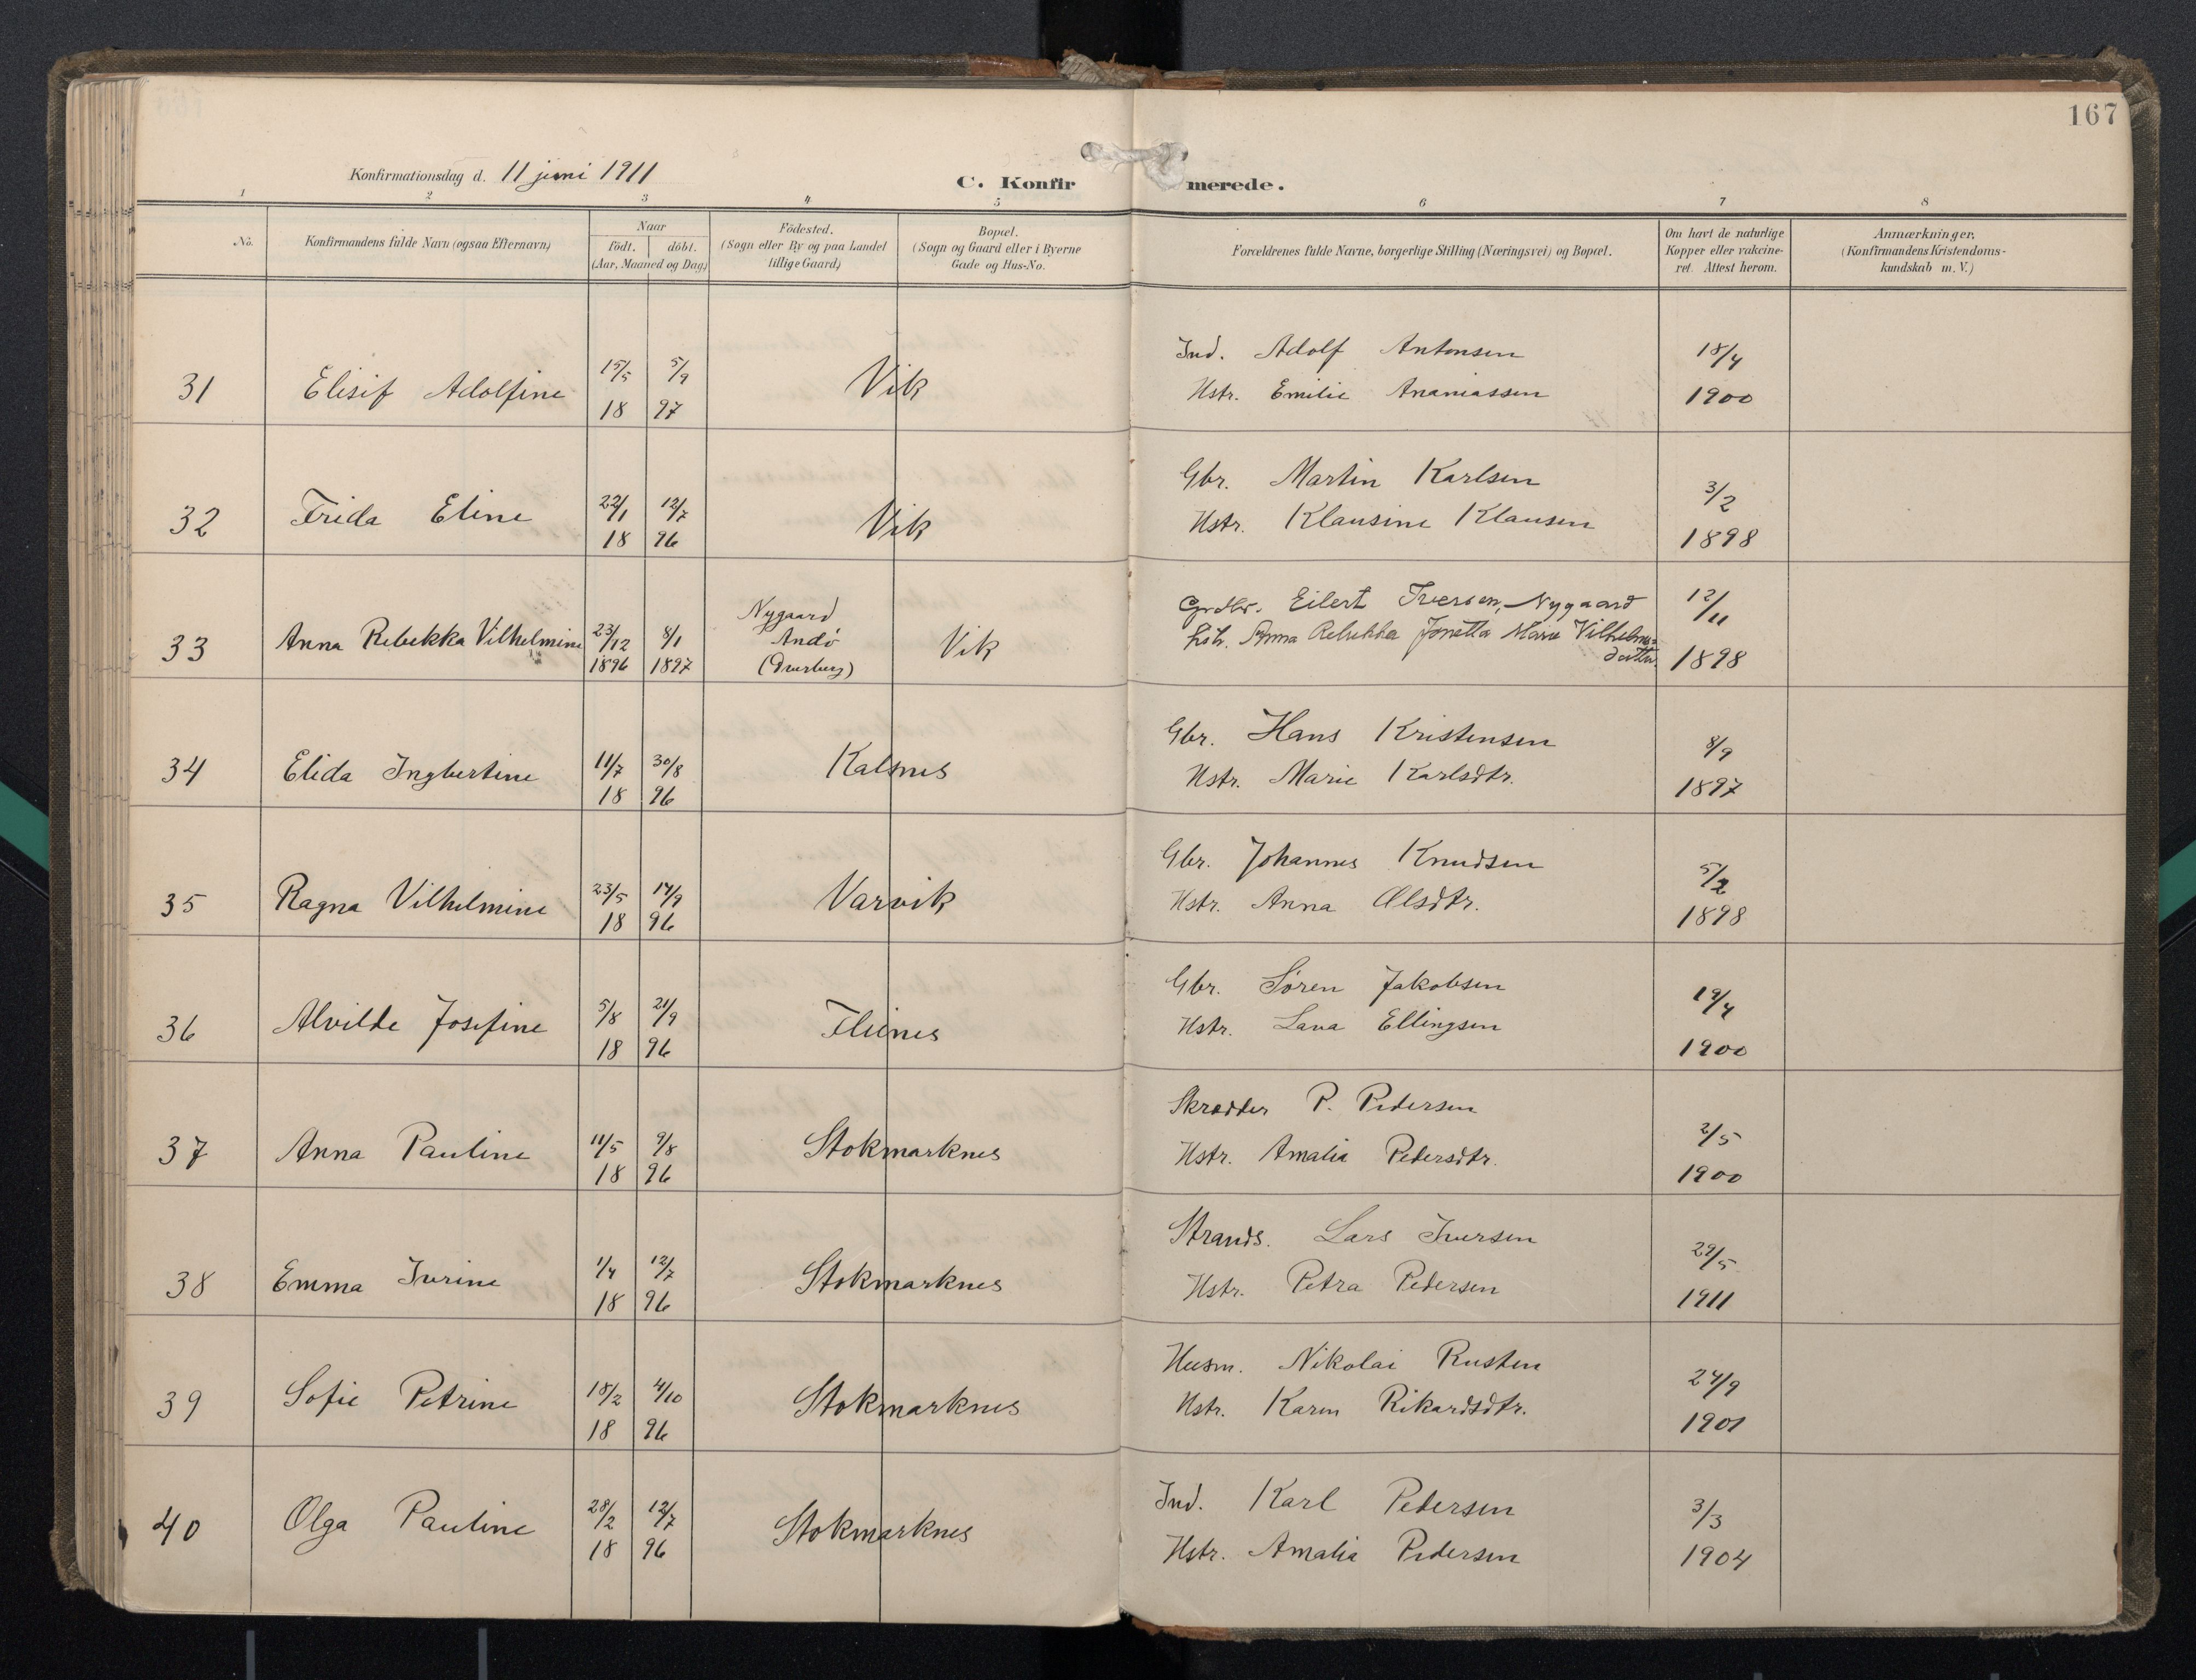 167
Konfirmationsdag d. 11 juni 1911
C. Konfirmerede.
1 2 3 4 5 6 7 8
No.
Konfirmandens fulde Navn (ogsaa Efternavn)
Naar
födt. döbt.
(Aar, Maaned og Dag)
Födested.
(Sogn eller By og paa Landet
tillige Gaard)
Bopæl.
(Sogn og Gaard eller i Byerne
Gade og Hus-No.
Forældrenes fulde Navne, borgerlige Stilling (Næringsvei) og Bopæl.
Om havt de naturlige
Kopper eller vakcine-
ret. Attest herom.
Anmærkninger.
(Konfirmandens Kristendoms-
kundskab m. V.)
Ind. Adolf Antonsen
31 Elisif Adolfine 15/5 5/9 Vik 18/4
18 97 Hstr. Emilie Ananiassen 1900
Gbr. Martin Karlsen
32 Frida Eline 22/1 12/7 Vik 3/2
18 96 Hstr. Klausine Klausen 1898
Nygaard Grdbr. Eilert Iversen, Nygaard 12/11
33 Anna Rebekka Vilhelmine 23/12 8/1 Andö Vik
1896 1897 Anna Rebekka Jonetta Marie Vilhelms-
datter. 1898
Gbr. Hans Kristensen
34 Elida Ingbertine 11/7 30/8 Kalsnes 8/9
18 96 Hstr. Marie Karlsdtr. 1897
Gbr. Johannes Knudsen
35 Ragna Vilhelmine 23/5 14/9 Varvik
18 96 Hstr. Anna Olsdtr. 1898
Gbr. Søren Jakobsen
36 Alvilde Josefine 5/8 21/9 Flienes 19/4
18 96 Hstr. Lava Ellingsen 1900
Skrædder P. Pedersen
37 Anna Pauline 11/5 9/8 Stokmarknes 2/5
18 96 Hstr. Amalia Pedersdtr. 1900
Strands. Lars Iversen
38 Emma Ivrine 1/4 12/7 Stokmarknes 29/5
18 96 Hstr. Petra Pedersen 1911
Husm. Nikolai Rusten
39 Sofie Petrine 18/2 4/10 Stokmarknes 24/9
18 96 Hstr. Karen Rikardsdtr. 1901
Ind. Karl Pedersen
40 Olga Pauline 28/2 12/7 Stokmarknes 3/3
18 96 Hstr. Amalia Pedersen 1904